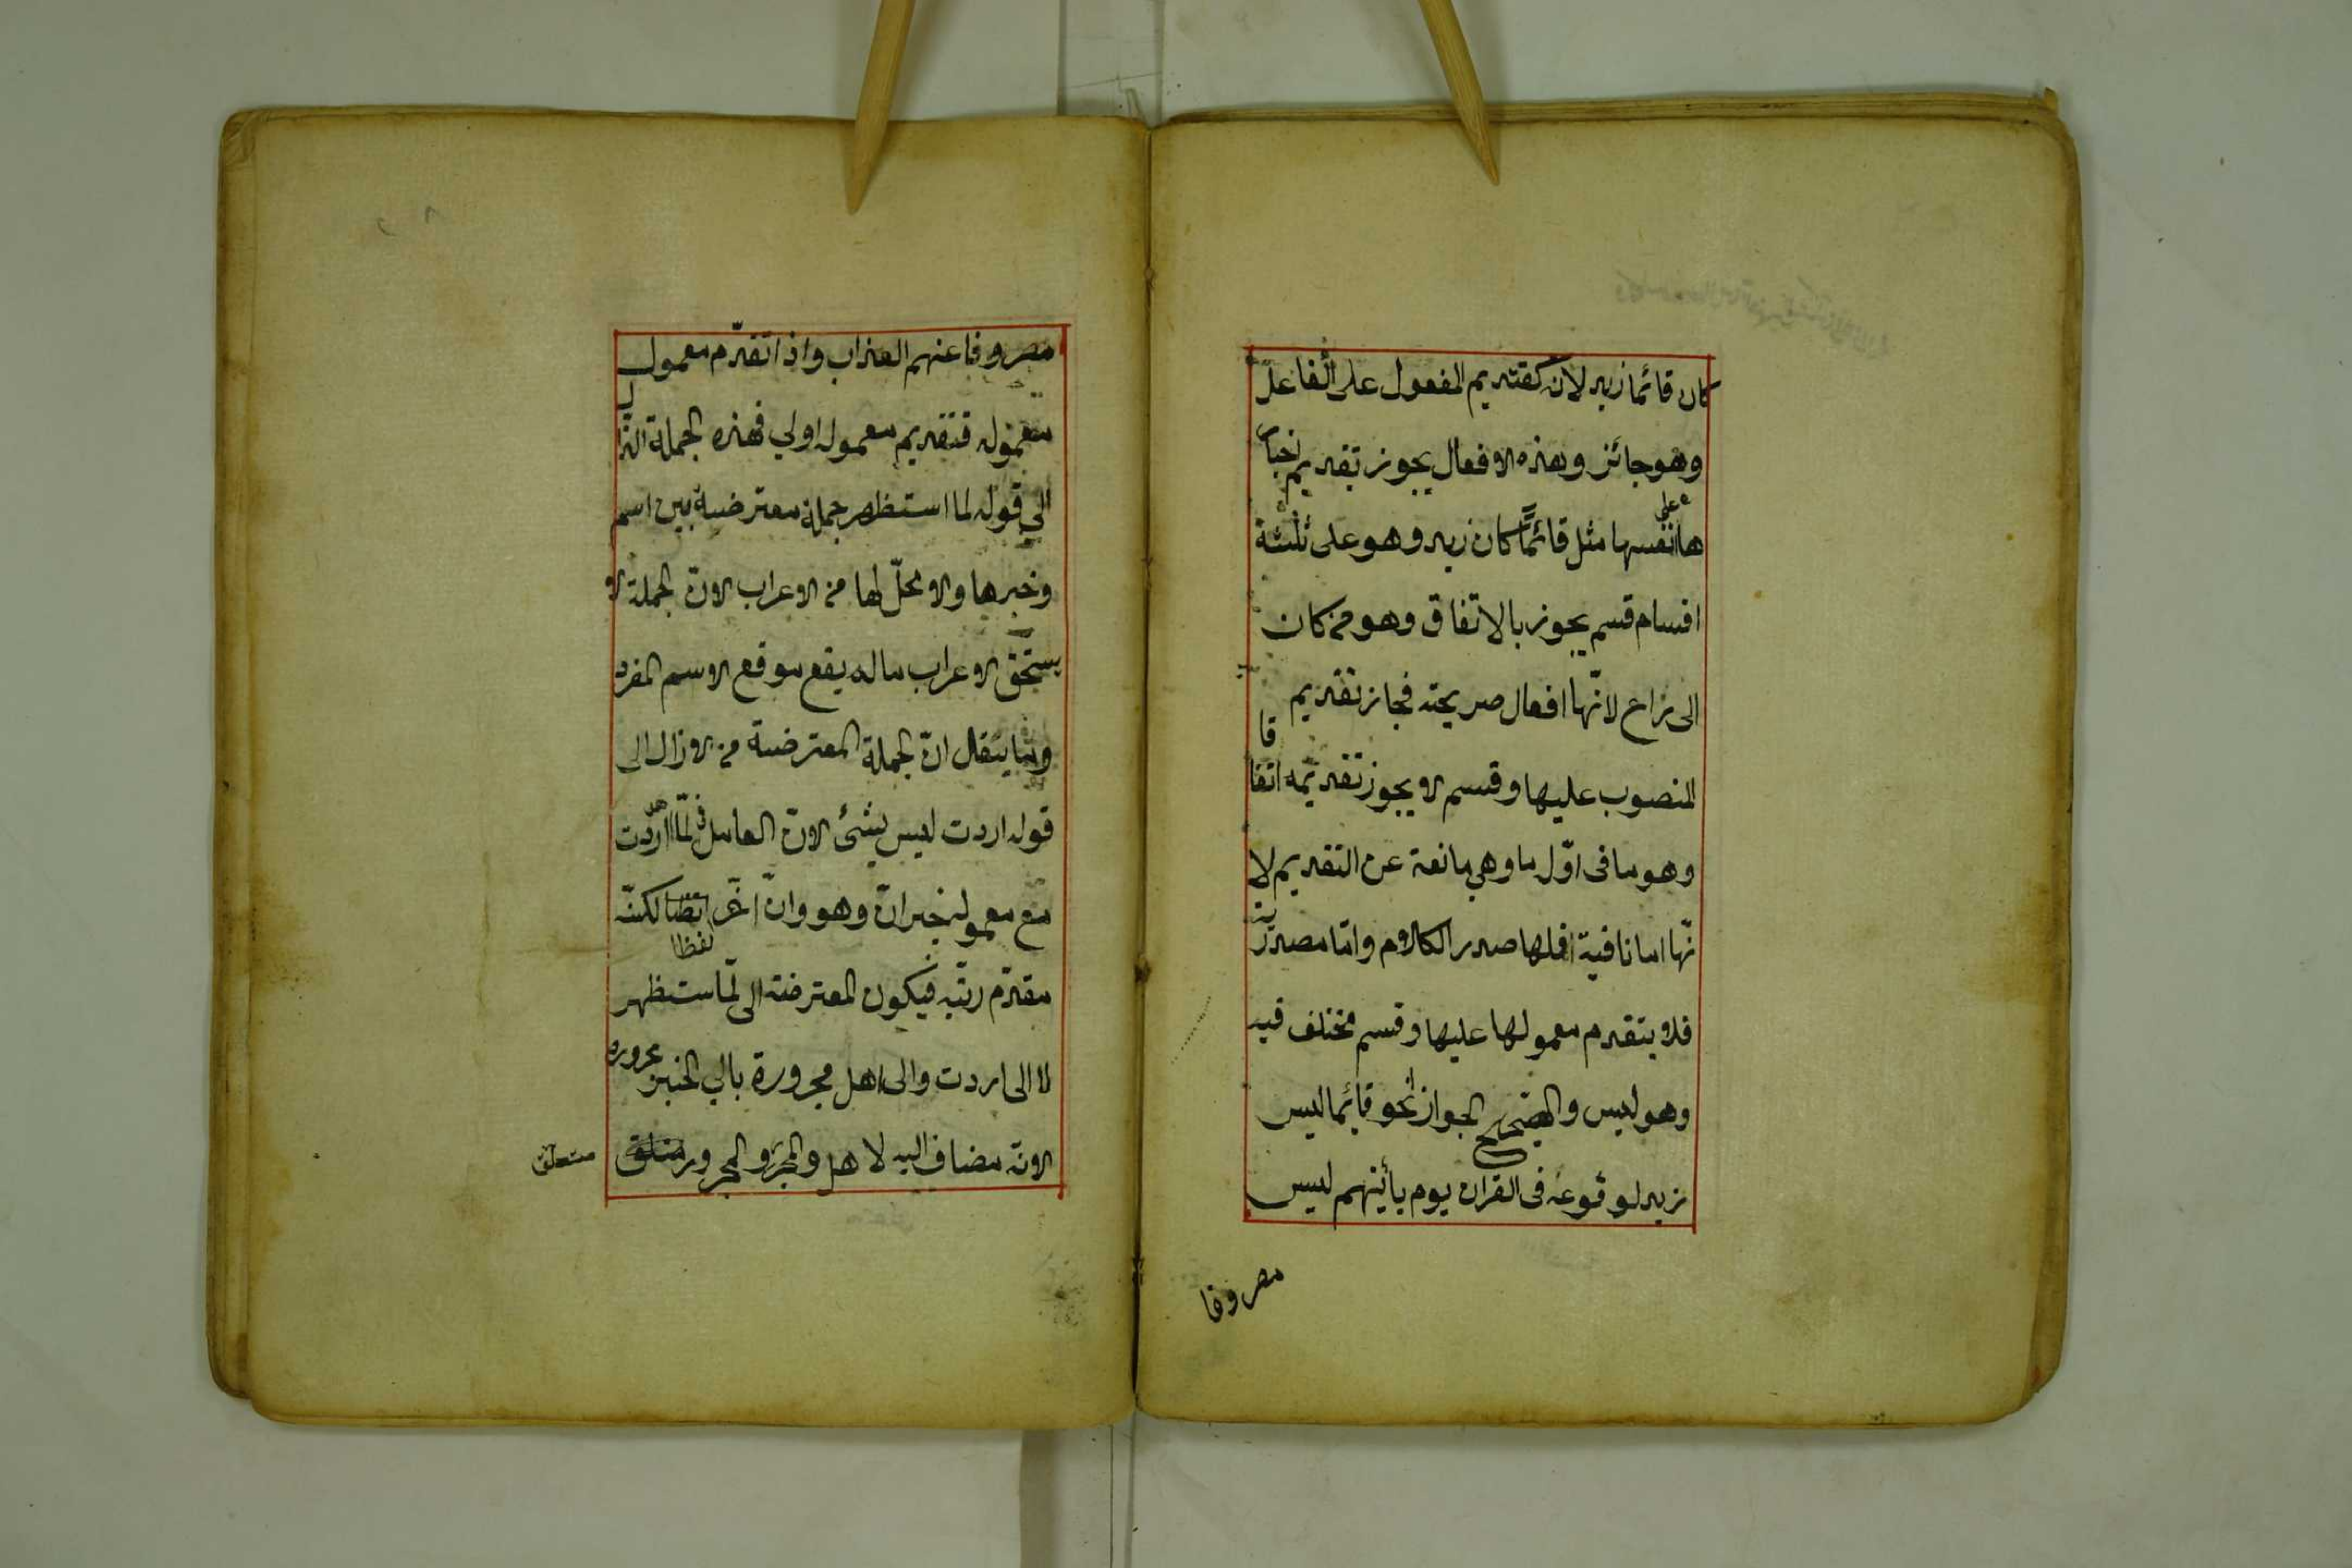 كان قائما زيد لانه كتقديم المفعول على الفاعل
وهو جائز وهذه الافعال يجوز تقديم اخبار
ها على انفسها مثل قائمًا كان زيد وهو على ثلثة
اقسام قسم يجوز بالاتفاق وهو من كان
الى راح لانّها افعال صريحة فجاز تقديم
المنصوب عليها وقسم لا يجوز تقديمه اتفاقا
وهو ما فى اوّل ما وهي مانعة عن التقديم لا
نّها اما نافية فلها صدر الكلام وامّا مصدرية
فلا يتقدم معمولها عليها وقسم مختلف فيه
وهو ليس والصّحيح الجواز نحو قائما ليس
زيد لوقوعه فى القران يوم يأتيهم ليس
مصروفا
مصروفا عنهم العذاب واذا تقدّم معمول
معموله فتقديم معموله اولي فهذه الجملة
الي قوله لما استظهر جملة معترضة بين اسم
وخبرها ولا محلّ لها من الاعراب لانّ الجملة لا
يستحق الاعراب ماله يقع موقع الاسم المفرد
وما يتقال انّ الجملة المعترضة من لا زال الى
قوله اردت ليس بشئ لانّ العامل فى لمّا اردت
مع معموله خبر انّ وهو وانّ لكنّه
مقدّم رتبه فيكون المعترضة الى لمّا استظهر
لا الى اردت والى اهل مجرورة بالي الخبز مجروره
لانّه مضاف اليه لاهل والجرّ والمجرور متعلق
متعلق